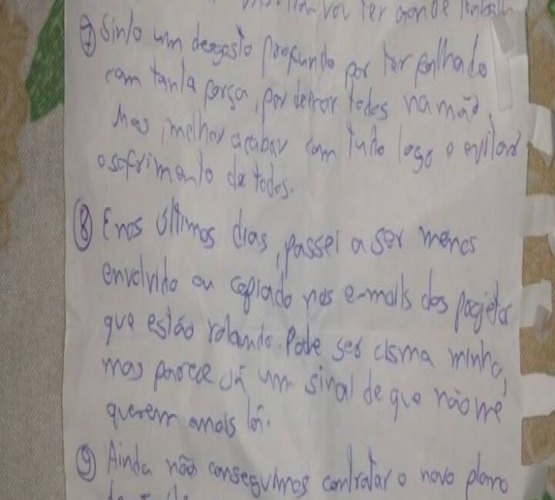 vou ter grande
⑦ Sinto um desgosto profundo por ter falhado
com tanta força, por deixar todos na mão.
Mas, melhor acabar com tudo logo e evitar
o sofrimento de todos.
⑧ E nos últimos dias, passei a ser menos
envolvido ou copiado nos e-mails dos projetos
que estão rolando. Pode ser cisma minha,
mas parece já um sinal de que não me
querem mais lá.
⑨ Ainda não conseguimos contratar o novo plano